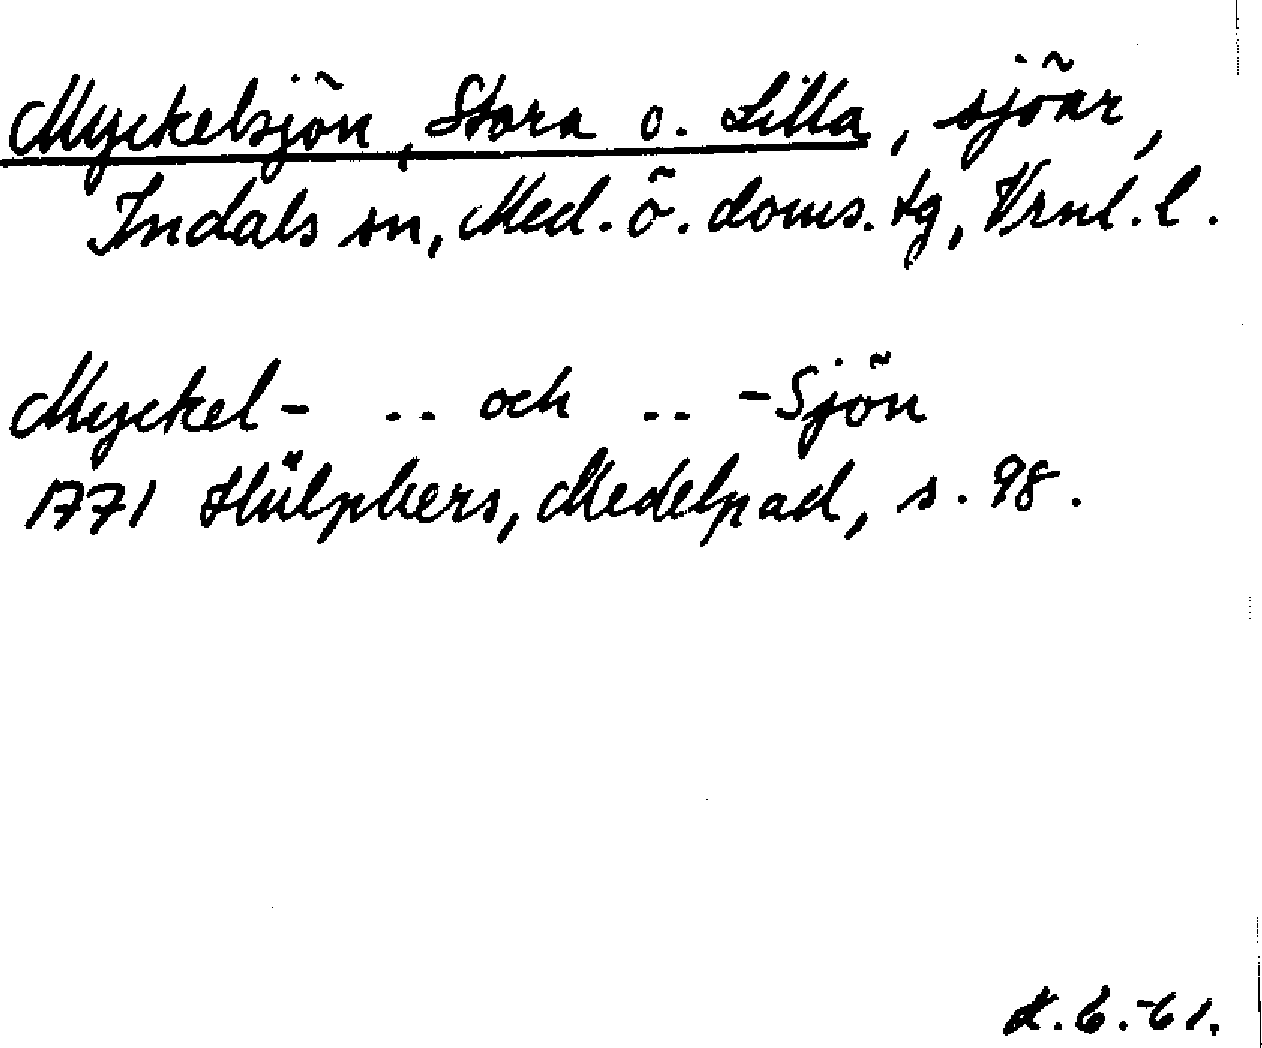 Myckelsjön, Stora o. Lilla, sjöar,
Indals sn, Med. ö. doms. tg, Vrnl. l.
Myckel- .. och .. -Sjön
1771 Hülphers, Medelpad, s. 98.